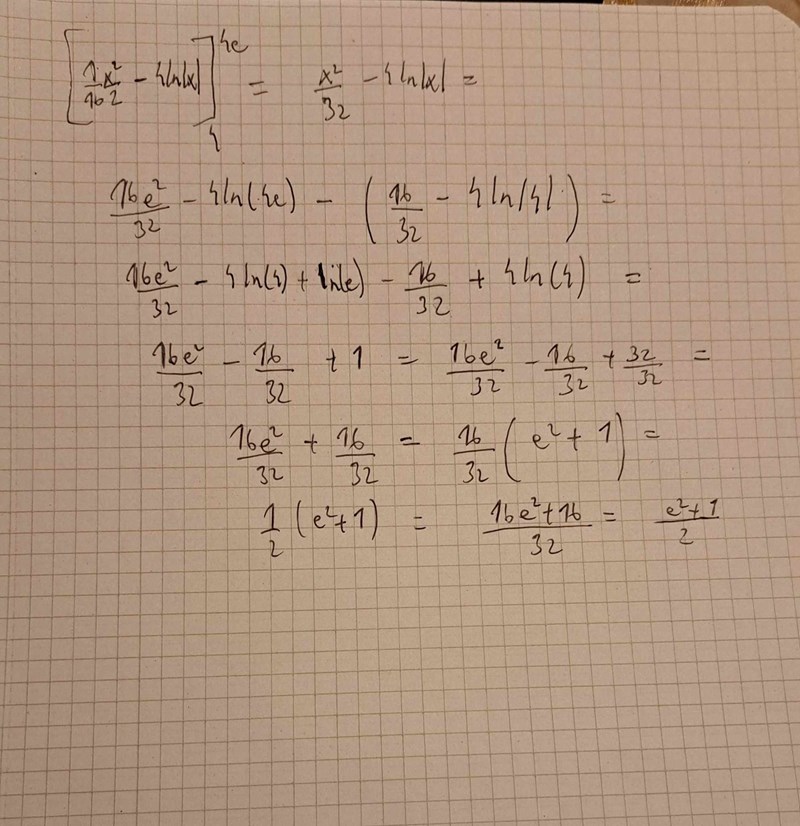 [1/16 x²/2 - 4ln|x|]₄⁴ᵉ = x²/32 - 4ln|x| =
16e²/32 - 4ln(4e) - (16/32 - 4ln|4|) =
16e²/32 - 4ln(4) + ln(e) - 16/32 + 4ln(4) =
16e²/32 - 16/32 + 1 = 16e²/32 - 16/32 + 32/32 =
16e²/32 + 16/32 = 16/32 (e² + 1) =
1/2 (e²+1) = 16e²+16/32 = e²+1/2